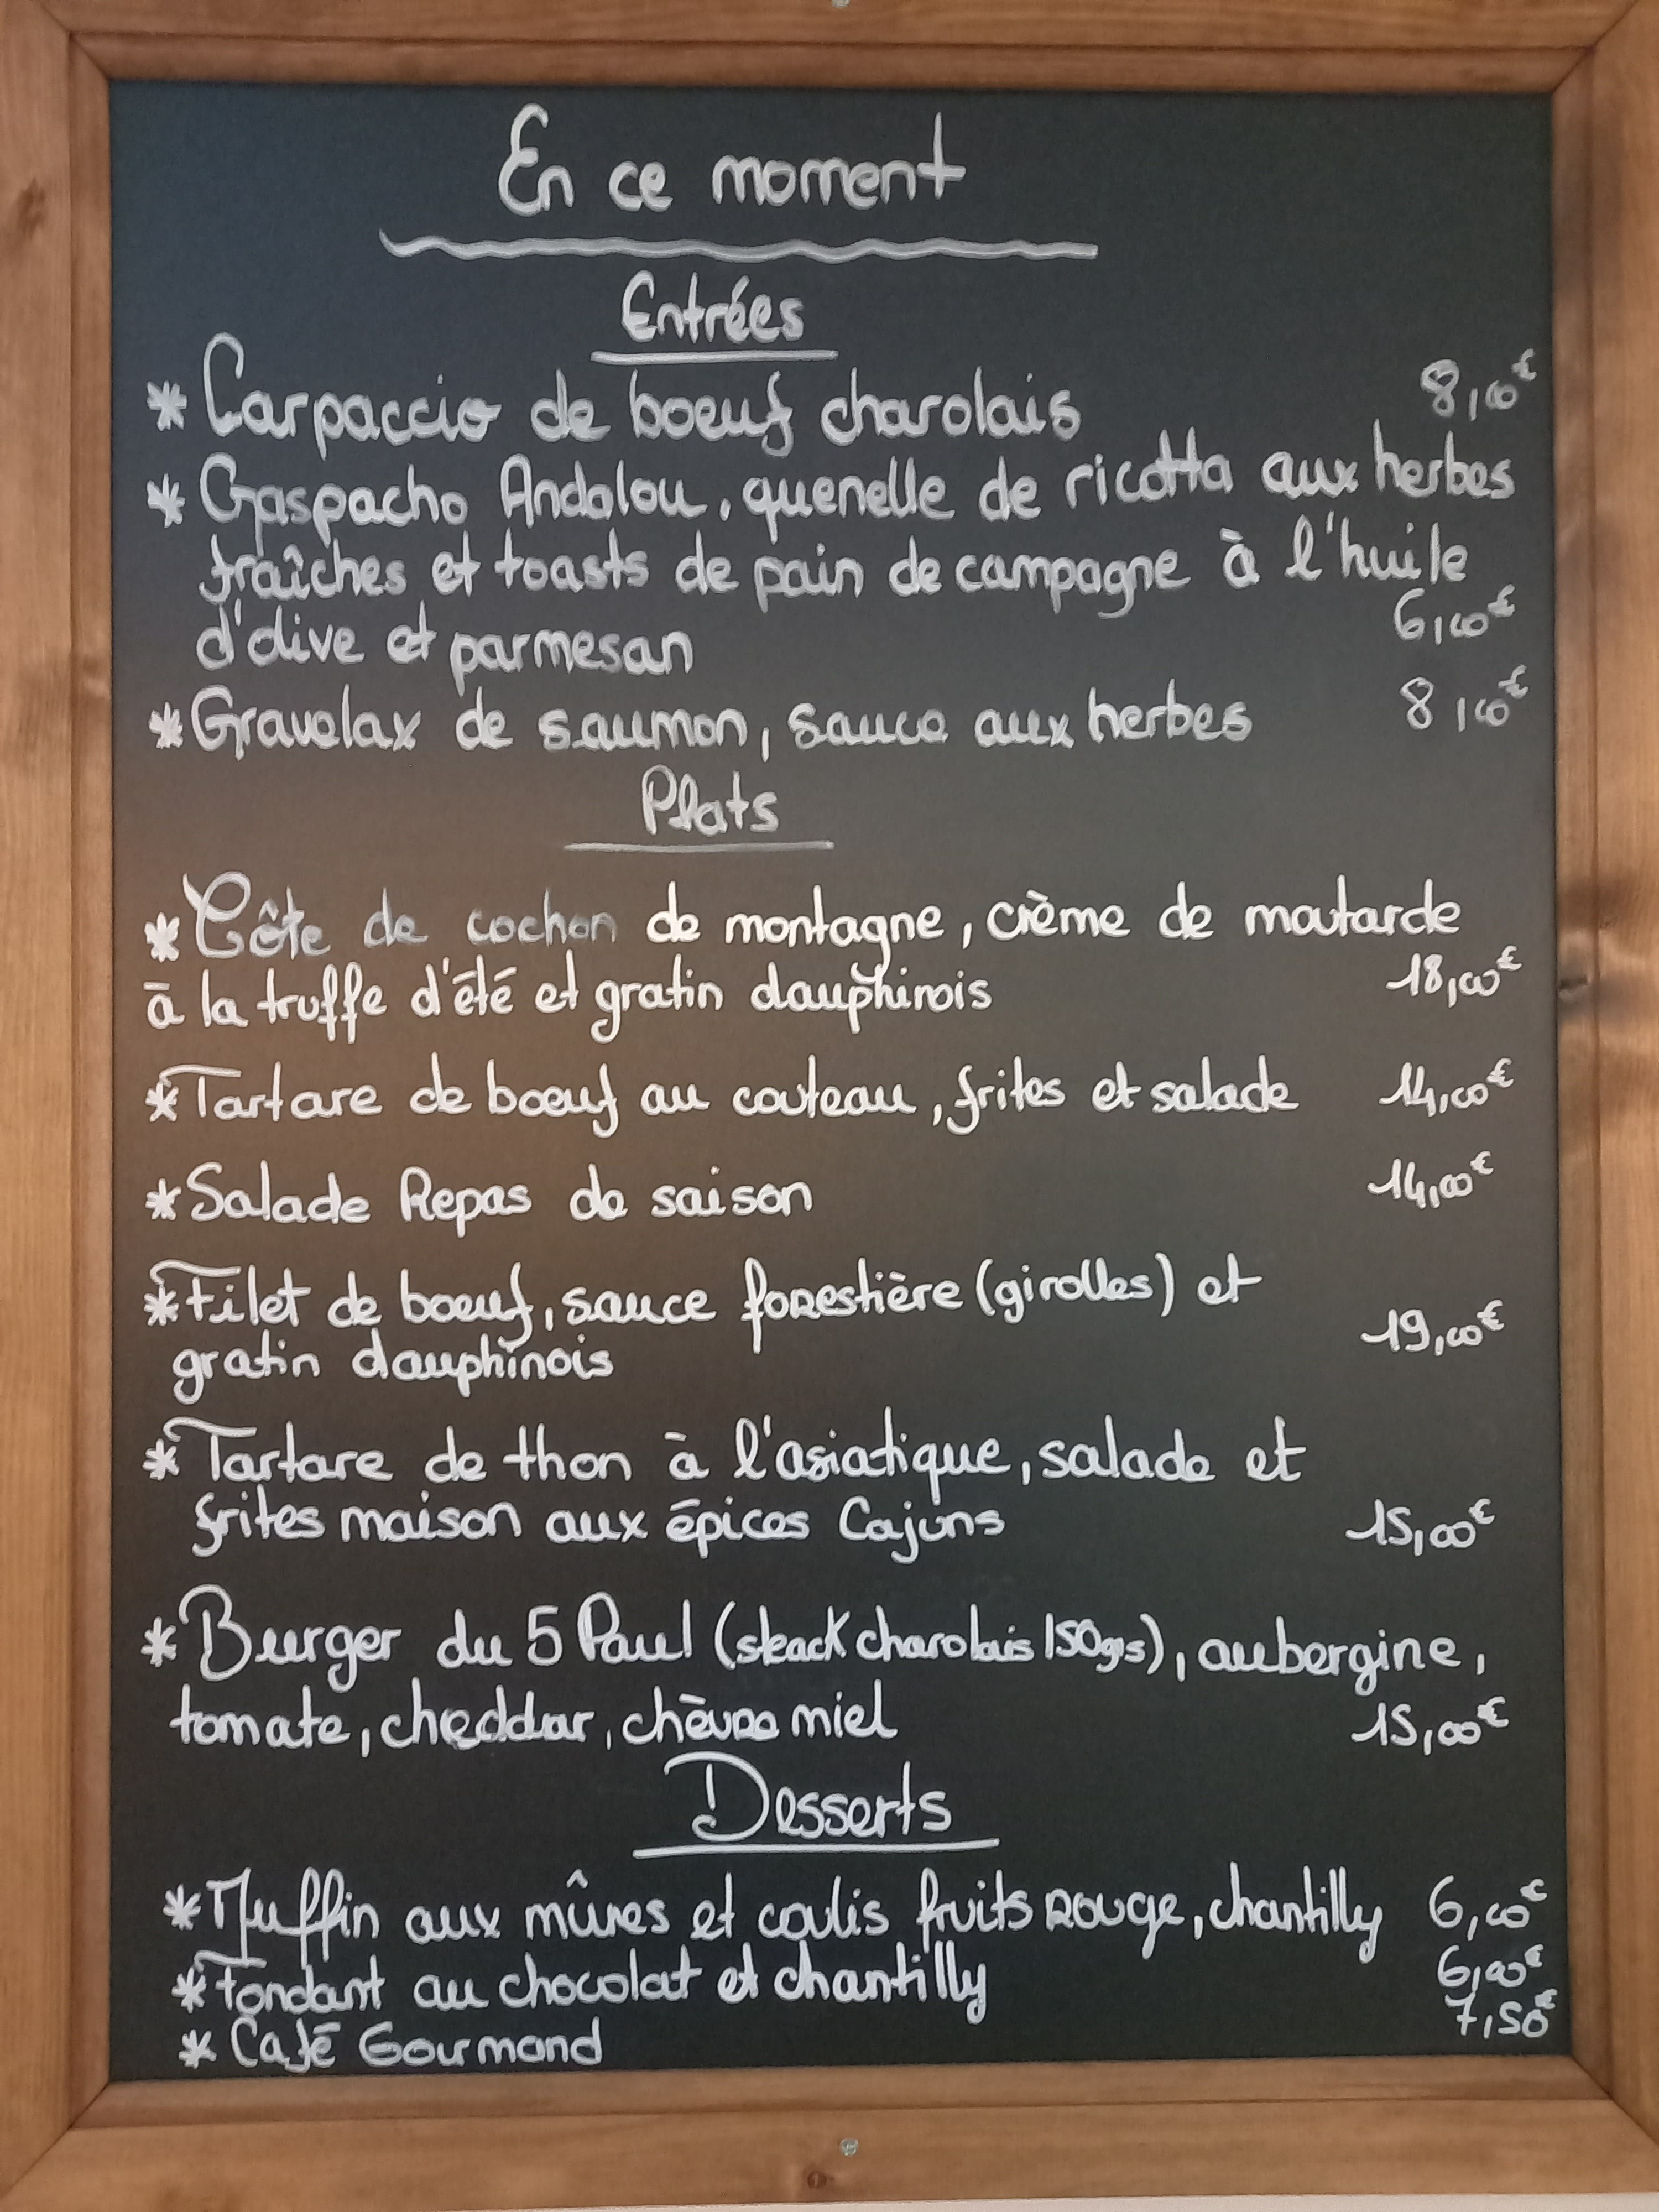 En ce moment
Entrées
* Carpaccio de boeuf charolais 8,00€
* Gaspacho Andalou, quenelle de ricotta aux herbes
fraîches et toasts de pain de campagne à l'huile
d'olive et parmesan 6,00€
* Gravelax de saumon, sauce aux herbes 8,00€
Plats
* Côte de cochon de montagne, crème de moutarde
à la truffe d'été et gratin dauphinois 18,00€
* Tartare de boeuf au couteau, frites et salade 14,00€
* Salade Repas de saison 14,00€
* Filet de boeuf, sauce forestière (girolles) et
gratin dauphinois 19,00€
* Tartare de thon à l'asiatique, salade et
frites maison aux épices Cajuns 15,00€
* Burger du 5 Paul (steack charolais 150grs), aubergine,
tomate, cheddar, chèvre miel 15,00€
Desserts
* Muffin aux mûres et coulis fruits rouge, chantilly 6,00€
* Fondant au chocolat et chantilly 6,00€
* Café Gourmand 7,50€